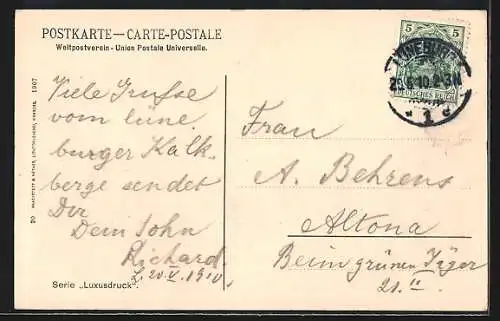 POSTKARTE—CARTE-POSTALE
Weltpostverein - Union Postale Universelle.
5 5
DEUTSCHES REICH
LÜNEBURG
* 1 d
Viele Grüsse
vom lüne
burger Kalk-
berge sendet
Dir
Dein Sohn
Richard.
20.V.1910.
Frau
A. Behrens
Altona
Beim grünen Jäger
21. II
Serie „Luxusdruck".
20
1907